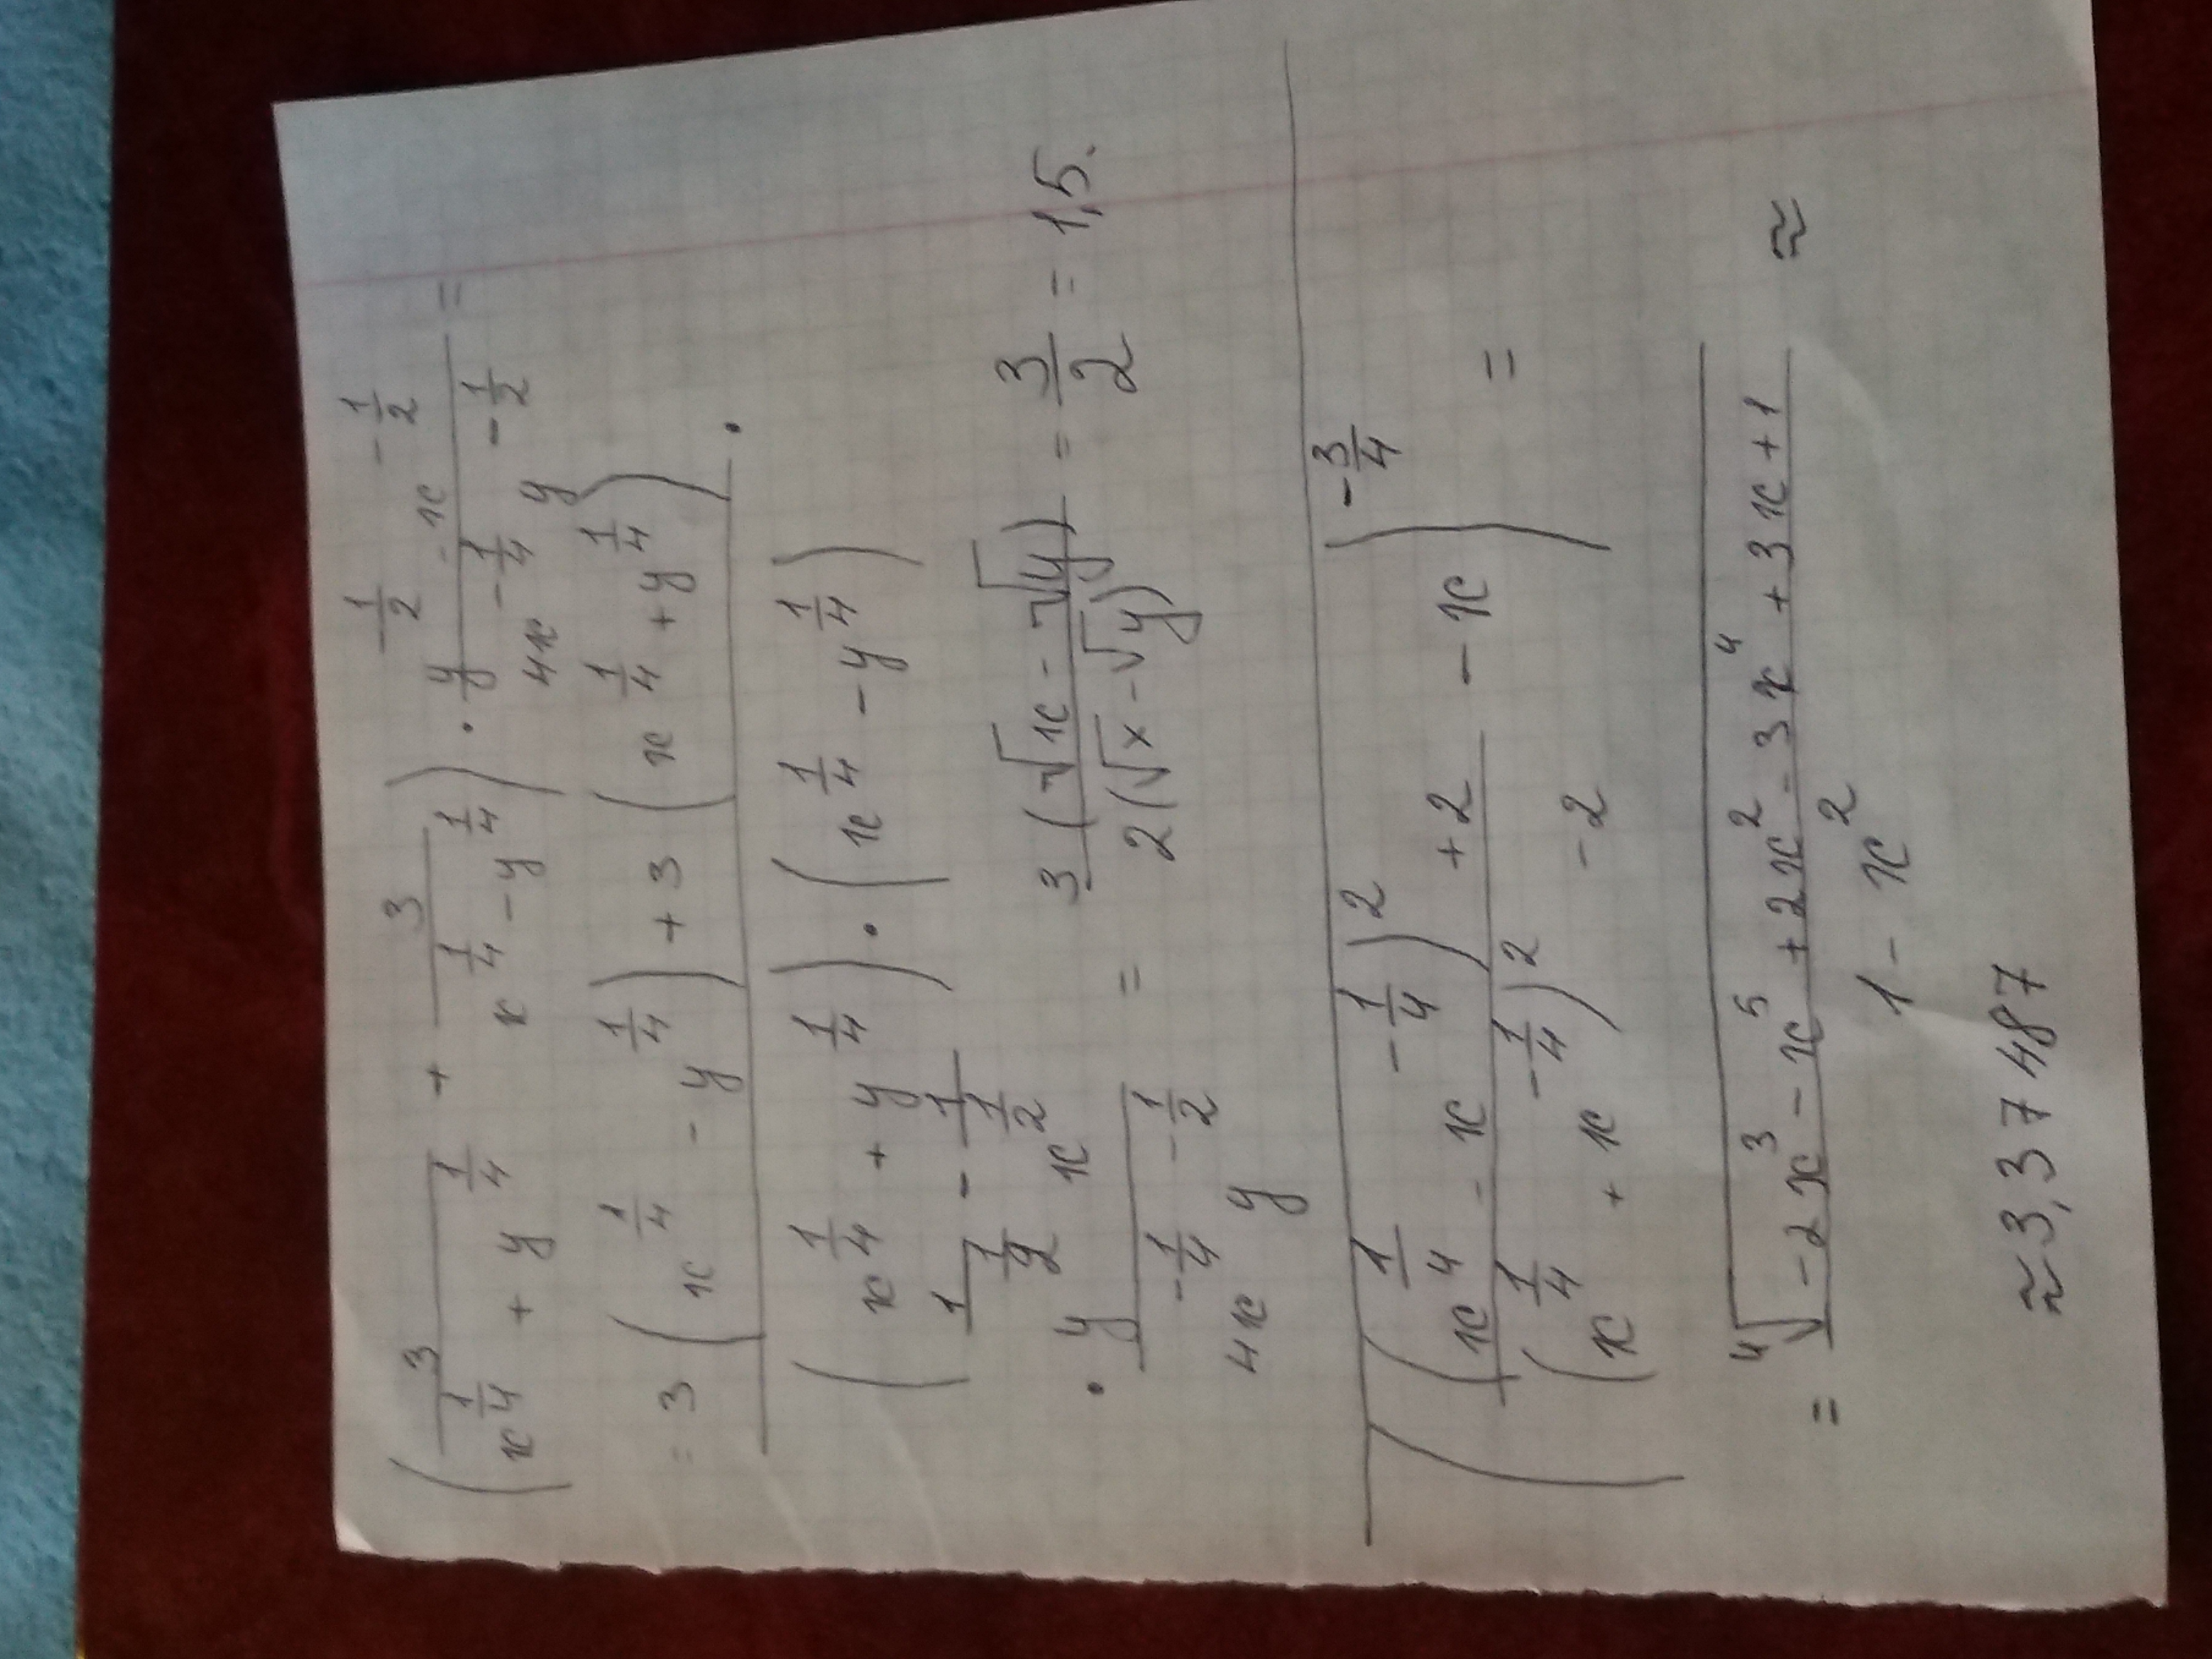 ( 3/(x^(1/4) + y^(1/4)) + 3/(x^(1/4) - y^(1/4)) ) · (y^(-1/2) - x^(-1/2))/(4x^(-1/4) y^(-1/2)) =
= (3(x^(1/4) - y^(1/4)) + 3(x^(1/4) + y^(1/4)))/((x^(1/4) + y^(1/4)) · (x^(1/4) - y^(1/4))) ·
· (1/y^(1/2) - 1/x^(1/2))/(4x^(-1/4) y^(-1/2)) = 3(√x - √y)/(2(√x - √y)) = 3/2 = 1,5.
( ((x^(1/4) - x^(-1/4))^2 + 2)/((x^(1/4) + x^(-1/4))^2 - 2) - x )^(-3/4) =
= ⁴√(-2x^3 - x^5 + 2x^2 - 3x^4 + 3x + 1)/(1 - x^2) ≈
≈ 3,37487